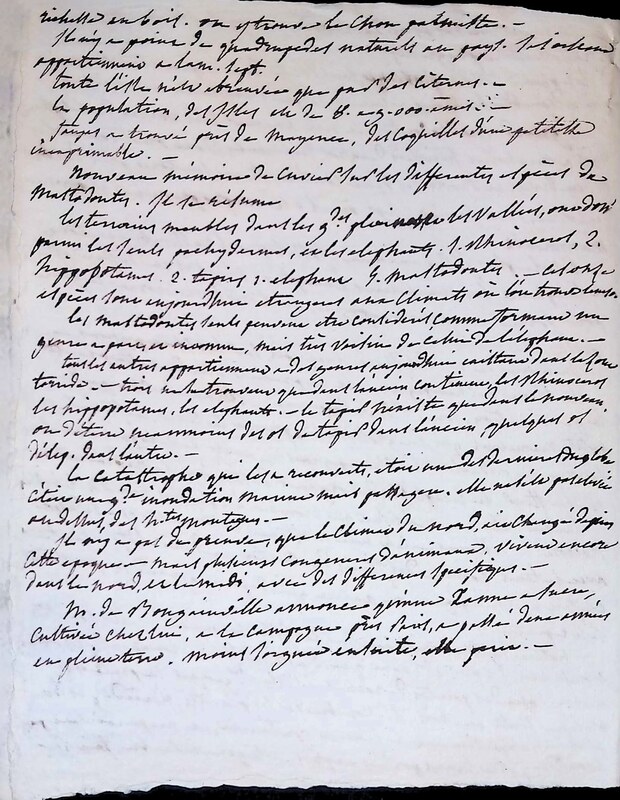 richesse en bois. on y trouve le chou palmiste. —
Il n'y a point de quadrupedes naturels au pays.
appartiennent a l'am. sept.
toute l'isle n'est abreuvée que par des citernes. —
la population, des isles est de 8. a 9.000 ames. —
a trouvé près de Mayence, des coquilles d'une petitesse
inexprimable. —
Nouveau mémoire de Cuvier sur les differentes especes de
Mastodontes. Il se résume
les terreins meubles dans les gdes plaines les vallées, ou
parmi les seuls pachydermes, et les elephants. 1. Rhinoceros, 2.
hippopotames. 2. tapirs 1. elephant 5. Mastodontes — ces onze
especes sont aujourdhuy etrangeres aux climats où l'on trouve leurs os.
les mastodontes seuls peuvent etre considerés comme formant un
genre a part, et inconnu, mais très voisin de celui de l'elephant. —
tous les autres appartiennent a des genres aujourdhuy existans dans la zone
torride. — trois ne se trouvent que dans l'ancien continent, les Rhinoceros
les hippopotames, les elephants. — le tapir n'existe que dans le nouveau,
on deterre neanmoins des os de tapir dans l'ancien, quelques os
d'élép. dans l'autre. —
la catastrophe qui les a recouverts, etoit une des dernieres du globe
c'etoit une gde inondation marine mais passagere. elle
au dessus, des htes montagnes. —
Il n'y a pas de preuve, que le climat du nord, ait changé depuis
cette epoque — mais plusieurs congeneres d'animaux, vivent encore
dans le nord, et le midi, avec des differences specifiques. —
M. de Bougainville annonce qu'une Canne a sucre,
cultivée chez lui, a la campagne près Paris, a passé deux années
en pleine terre. moins soignée ensuite, elle perit. —